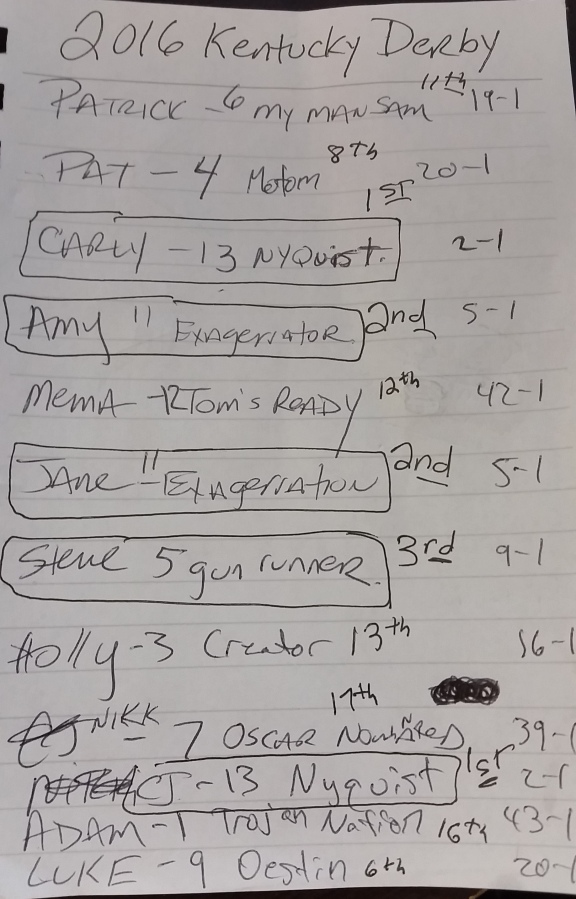 2016 Kentucky Derby
PATRICK - 6 MY MAN SAM 11th 19-1
PAT - 4 Motom 8th 20-1
CARLY - 13 NYQuist. 1ST 2-1
Amy 11 ExAgerrATOR 2nd 5-1
MemA - 12 Tom's ReADY 12th 42-1
JAne 11 - ExAgerrAtion 2nd 5-1
Steve 5 gun runner. 3rd 9-1
Holly - 3 Creator 13th 16-1
NIKK 7 OSCAR 17th 39-1
CJ - 13 Nyquist 1st 2-1
ADAM - 1 Trojan Nation 16th 43-1
LUKE - 9 Destin 6th 20-1